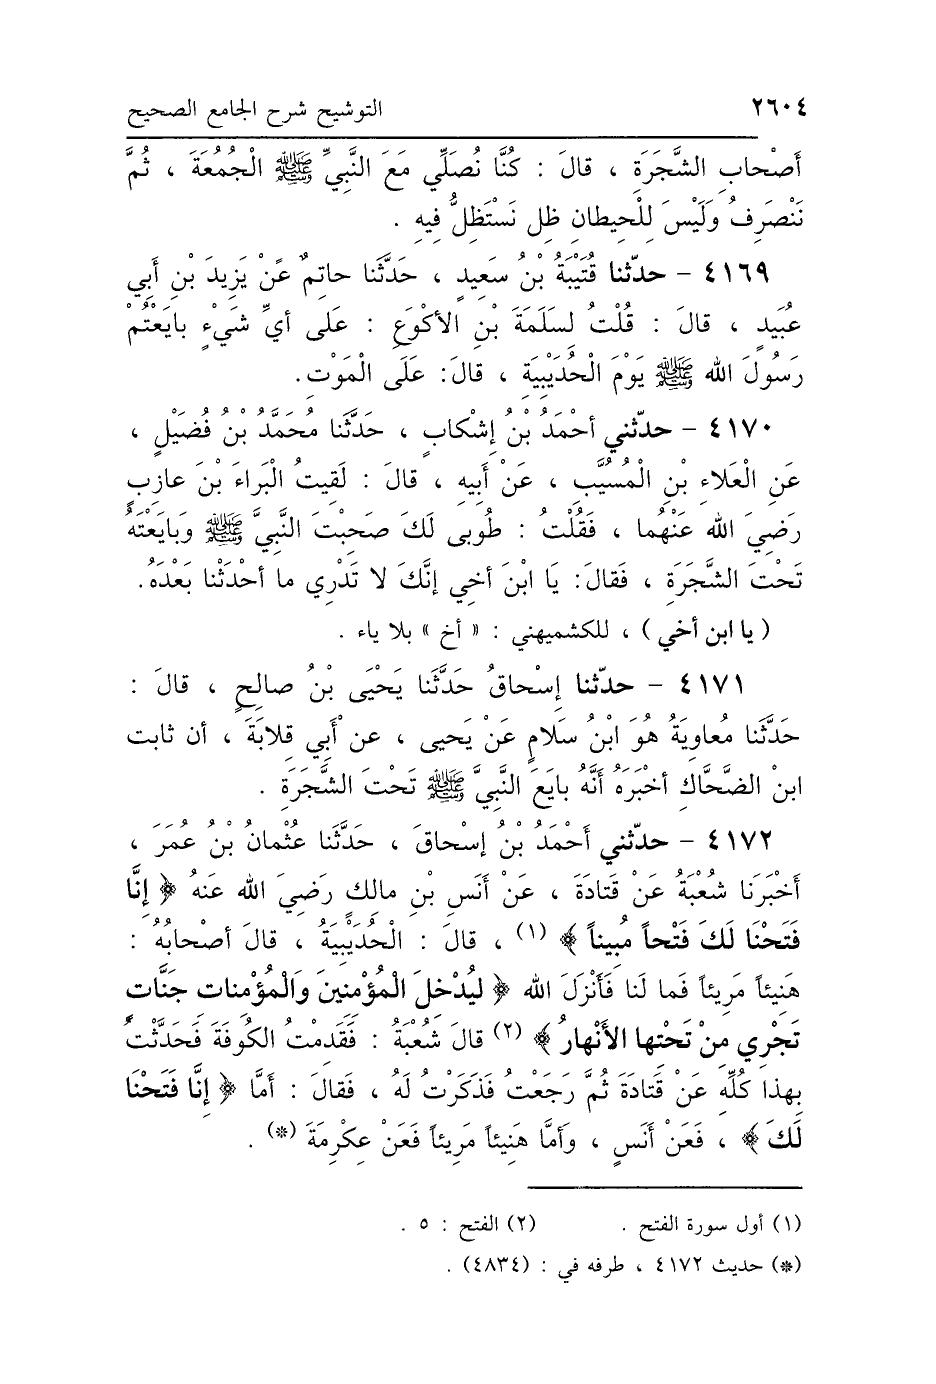 ٢٦٠٤ التوشيح شرح الجامع الصحيح
أَصْحابِ الشَّجَرَةِ ، قالَ : كُنَّا نُصَلِّي مَعَ النَّبِيِّ ﷺ الْجُمُعَةَ ، ثُمَّ
نَنْصَرِفُ وَلَيْسَ لِلْحيطانِ ظل نَسْتَظلُّ فيهِ .
٤١٦٩ – حدّثنا قُتَيْبَةُ بْنُ سَعِيدٍ ، حَدَّثَنا حاتِمٌ عَنْ يَزِيدَ بْنِ أَبِي
عُبَيدٍ ، قالَ : قُلْتُ لِسَلَمَةَ بْنِ الأكْوَعِ : عَلَى أيِّ شَيْءٍ بايَعْتُمْ
رَسُولَ الله ﷺ يَوْمَ الْحُدَيْبِيَةِ ، قالَ: عَلَى الْمَوْتِ.
٤١٧٠ – حدّثني أحْمَدُ بْنُ إشْكابٍ ، حَدَّثَنا مُحَمَّدُ بْنُ فُضَيْلٍ ،
عَنِ الْعَلاءِ بْنِ الْمُسُيَّبِ ، عَنْ أَبيهِ ، قالَ : لَقِيتُ الْبَراءَ بْنَ عازِبٍ
رَضِيَ الله عَنْهُما ، فَقُلْتُ : طُوبى لَكَ صَحِبْتَ النَّبِيَّ ﷺ وَبايَعْتَهُ
تَحْتَ الشَّجَرَةِ ، فَقالَ: يَا ابْنَ أخي إنَّكَ لا تَدْرِي ما أحْدَثْنا بَعْدَهُ.
( يا ابن أخي ) ، للكشميهني : « أخ » بلا ياء .
٤١٧١ – حدّثنا إسْحاقُ حَدَّثَنا يَحْيَى بْنُ صالِحٍ ، قالَ :
حَدَّثَنا مُعاوِيَةُ هُوَ ابْنُ سَلامٍ عَنْ يَحيى ، عن أَبِي قِلابَةَ ، أن ثابت
ابنْ الضَّحَّاكِ أخْبَرَهُ أنَّهُ بايَعَ النَّبِيَّ ﷺ تَحْتَ الشَّجَرَةِ .
٤١٧٢ – حدّثني أَحْمَدُ بْنُ إسْحاقَ ، حَدَّثَنا عثْمانُ بْنُ عُمَرَ ،
أَخْبَرَنا شُعْبَةُ عَنْ قَتادَةَ ، عَنْ أَنَسِ بْنِ مالِكٍ رَضِيَ الله عَنهُ ﴿ إِنَّا
فَتَحْنَا لَكَ فَتْحاً مُبيناً ﴾ (١) ، قالَ : الْحُدَيْبِيَةُ ، قالَ أصْحابُهُ :
هَنيئاً مَريئاً فَما لَنا فَأَنْزَلَ الله ﴿ ليُدْخلَ الْمُؤْمنينَ وَالْمُؤْمنات جَنَّات
تَجْري منْ تَحْتها الأَنْهارُ ﴾ (٢) قالَ شُعْبَةُ : فَقَدمْتُ الكُوفَةَ فَحَدَّثْتُ
بِهذا كُلِّهِ عَنْ قَتادَةَ ثُمَّ رَجَعْتُ فَذَكَرْتُ لَهُ ، فَقالَ : أَمَّا ﴿ إِنَّا فَتَحْنَا
لَكَ ﴾ ، فَعَنْ أَنَسٍ ، وَأمَّا هَنيئاً مَريئاً فَعَنْ عِكْرِمَةَ (*) .
(١) أول سورة الفتح . (٢) الفتح : ٥ .
(*) حديث ٤١٧٢ ، طرفه في : (٤٨٣٤) .